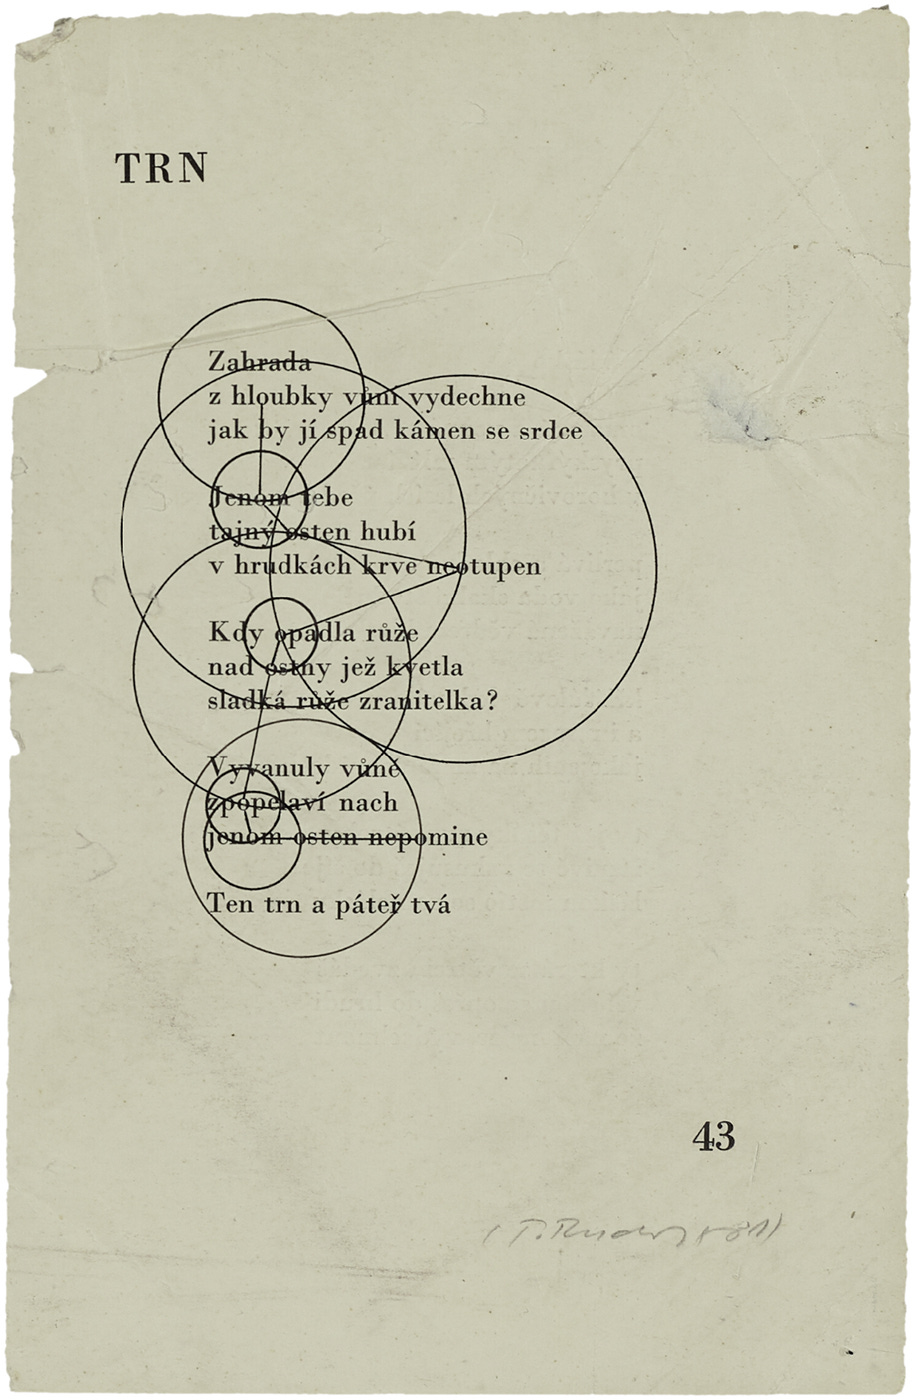 TRN
Zahrada
z hloubky vůní vydechne
jak by jí spad kámen se srdce
Jenom tebe
tajný osten hubí
v hrudkách krve neotupen
Kdy opadla růže
nad ostny jež kvetla
sladká růže zranitelka?
Vyvanuly vůně
zpopelaví nach
jenom osten nepomine
Ten trn a páteř tvá
43